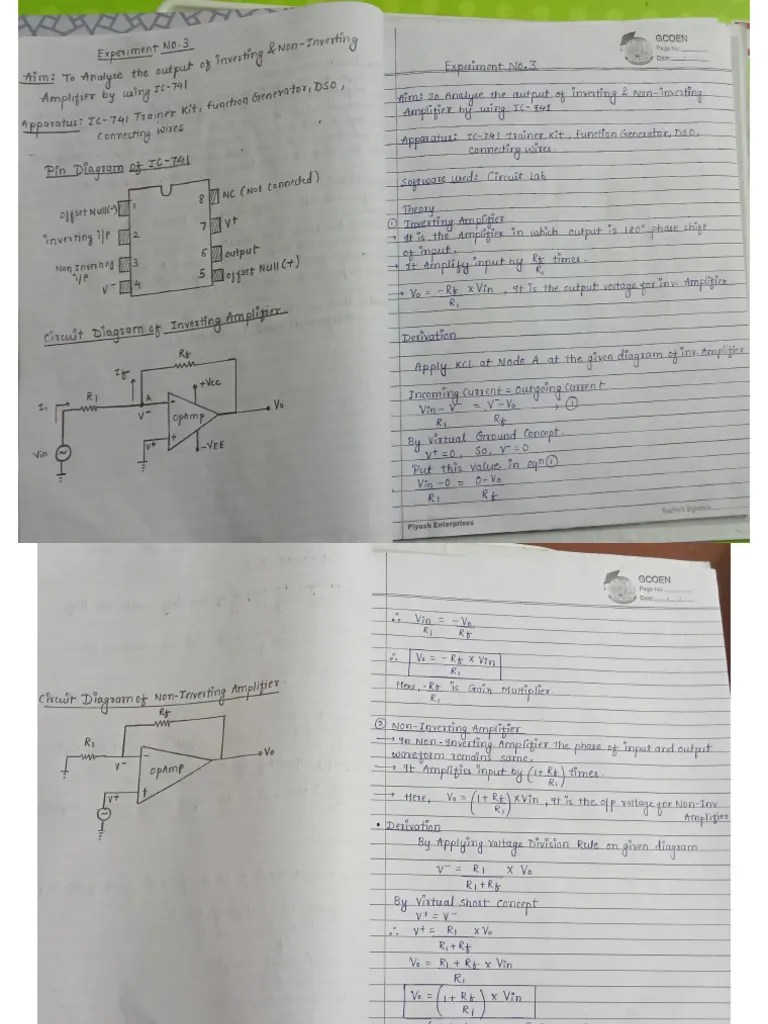 Experiment No.3
Aim: To Analyse the output of inverting & Non-Inverting
Amplifier by using IC-741
Apparatus: IC-741 Trainer Kit, function Generator, DSO,
connecting wires
Pin Diagram of IC-741
offset Null(-) 1
8 NC (Not connected)
inverting i/p 2
7 V+
Non Inverting i/p 3
6 output
V- 4
5 offset Null (+)
Circuit Diagram of Inverting Amplifier
Rf
If
+Vcc
R1
A
I1
V-
OPAMP
Vo
V+
-VEE
Vin
GCOEN
Page No.
Date
Experiment No.3
Aim: To Analyse the output of inverting & Non-inverting
Amplifier by using IC-741
Apparatus: IC-741 Trainer Kit, function Generator, DSO,
connecting wires.
Software used: Circuit Lab
Theory
① Inverting Amplifier
→ It is the Amplifier in which output is 180° phase shift
of input.
→ It Amplify input by Rf/R1 times.
→ Vo = -Rf/R1 × Vin, It is the output voltage for inv. Amplifier
Derivation
Apply KCL at Node A at the given diagram of inv. Amplifier
Incoming Current = Outgoing Current
Vin - V-/R1 = V- - Vo/Rf → ①
By Virtual Ground Concept.
V+ = 0, So, V- = 0
Put this value in eqn ①
Vin - 0/R1 = 0 - Vo/Rf
Teacher's Signature
Piyush Enterprises
Circuit Diagram of Non-Inverting Amplifier
Rf
R1
V-
OPAMP
Vo
V+
GCOEN
Page No.
Date
∴ Vin/R1 = -Vo/Rf
∴ Vo = -Rf/R1 × Vin
Here, -Rf/R1 is Gain Multiplier.
② Non-Inverting Amplifier
→ In Non-Inverting Amplifier the phase of input and output
waveform remains same.
→ It Amplifies input by (1 + Rf/R1) times.
→ Here, Vo = (1 + Rf/R1) × Vin, It is the o/p voltage for Non-Inv.
Amplifier
• Derivation
By Applying Voltage Division Rule on given diagram
V- = R1/R1+Rf × Vo
By Virtual Short Concept
V+ = V-
∴ V+ = R1/R1+Rf × Vo
Vo = R1 + Rf/R1 × Vin
Vo = (1 + Rf/R1) × Vin